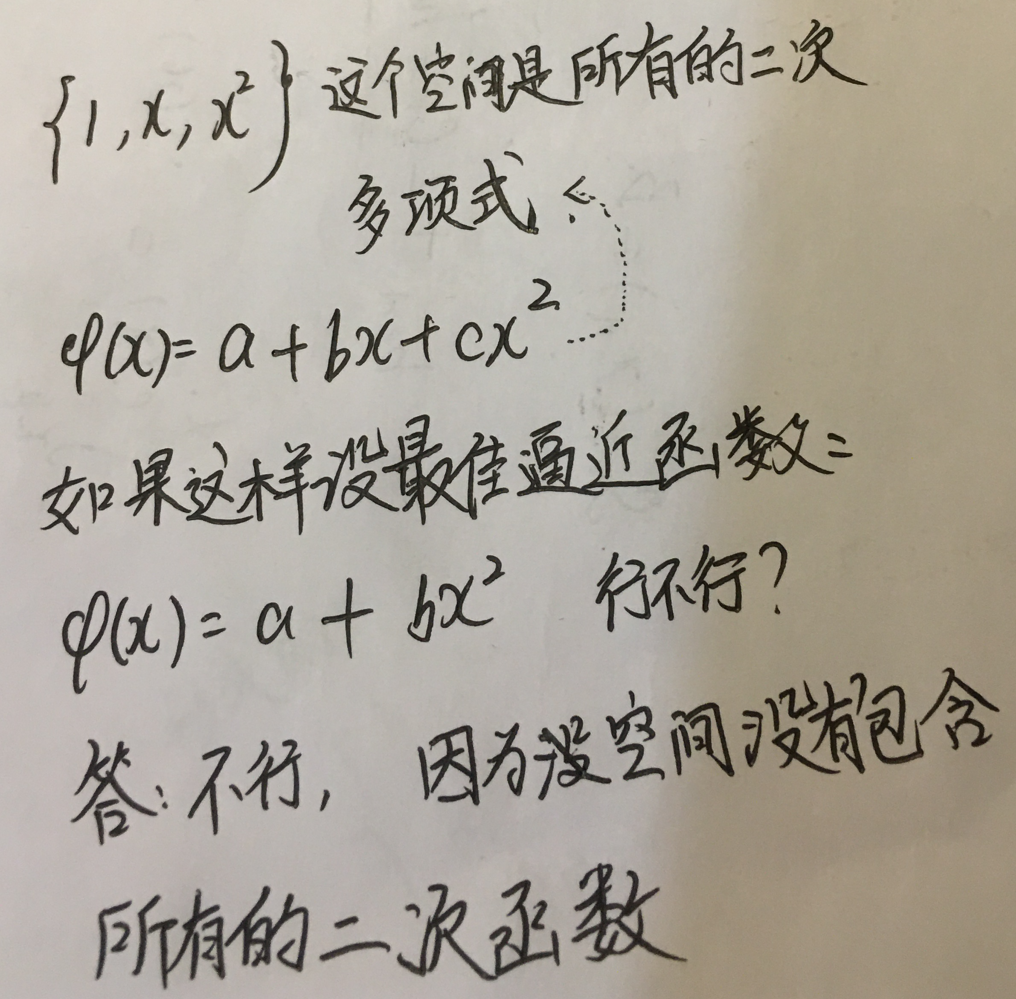 {1,x,x²} 这个空间是所有的二次
多项式.
φ(x)=a+bx+cx²
如果这样设最佳逼近函数:
φ(x)=a+bx² 行不行?
答:不行, 因为没空间没有包含
所有的二次函数